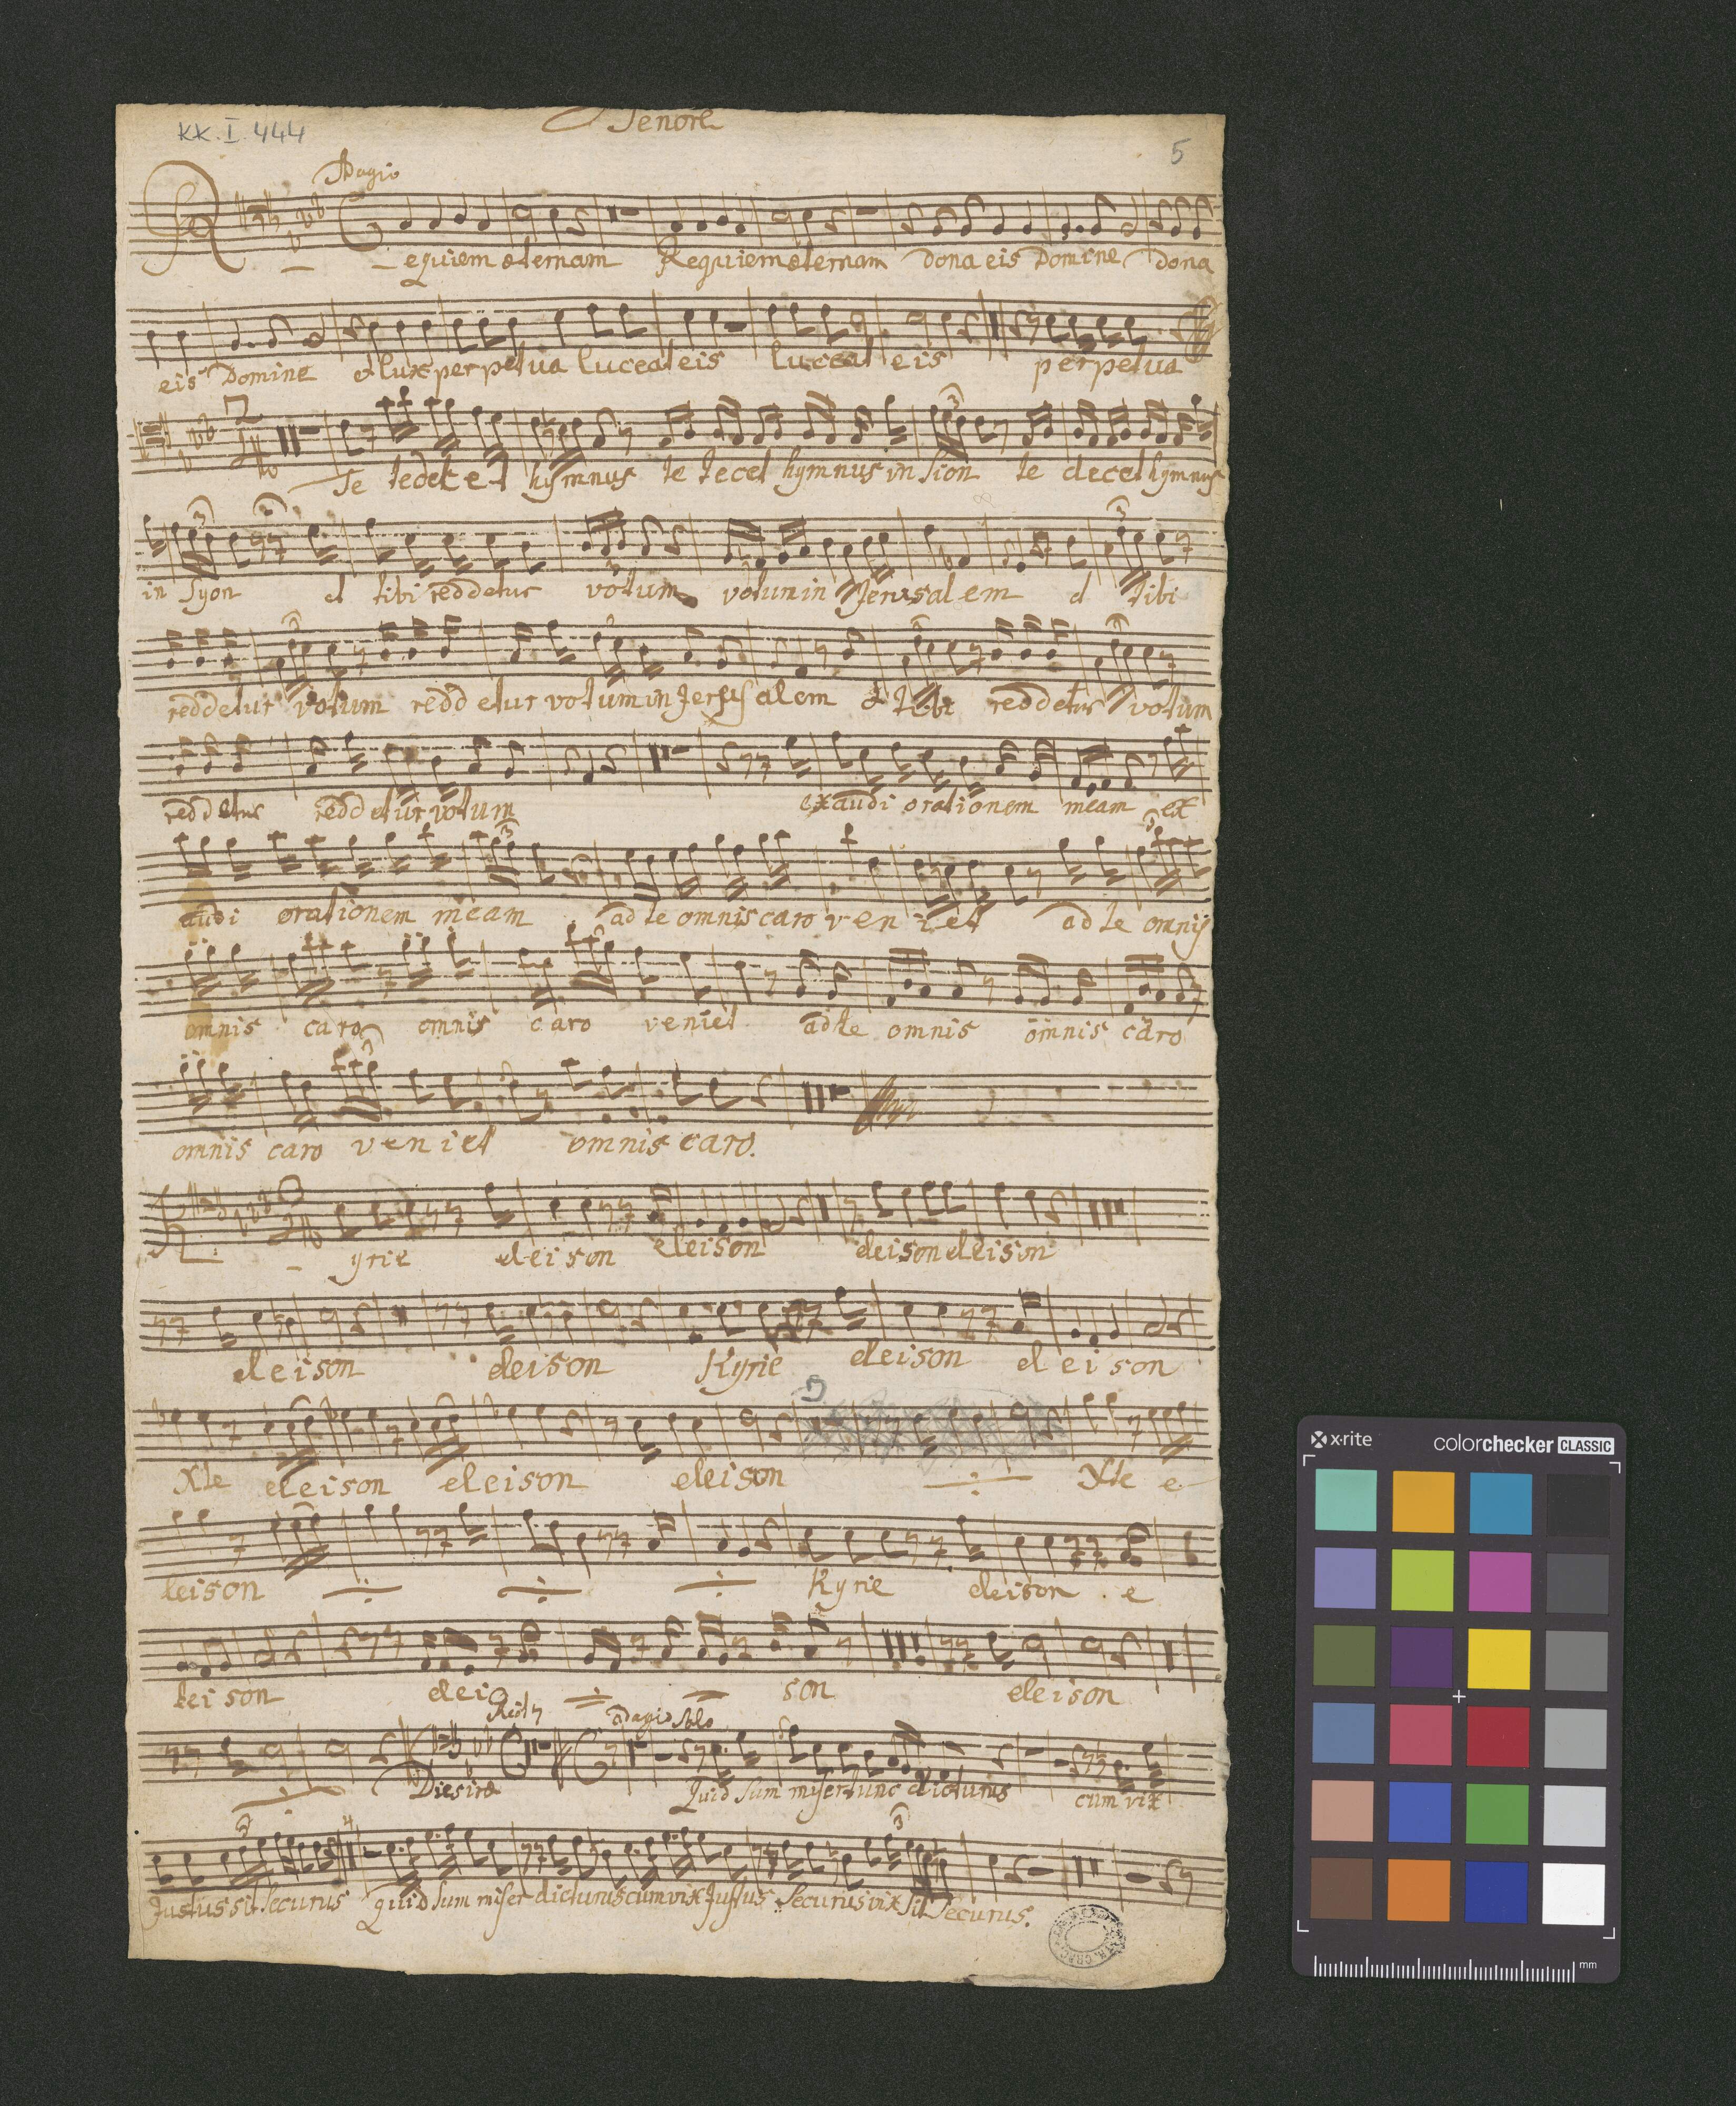 KK. I. 444
Tenore
5
Adagio
Requiem æternam Requiem æternam Dona eis Domine Dona
eis Domine et lux perpetua luceat eis luceat eis perpetua
Te tedet et hymnus te tecet hymnus in Sion te decet hymnus
in Syon et tibi reddetur votum votum in Jerusalem et tibi
reddetur votum reddetur votum in Jerusalem et tibi reddetur votum
reddetur reddetur votum exaudi orationem meam ex
audi orationem meam ad te omnis caro veniet ad te omnis
omnis caro omnis caro veniet ad te omnis omnis caro
omnis caro veniet omnis caro.
Kyrie eleison eleison eleison eleison
eleison eleison Kyrie eleison eleison
Xte eleison eleison eleison Xte e
leison Kyrie eleison e
leison elei son eleison
Recit adagio Solo
Dies iræ Quid Sum miser tunc dicturus cum vix
Justus sit Securus Quid Sum miser dicturus cum vix Justus Securus vix sit Securus.
x·rite colorchecker CLASSIC
mm